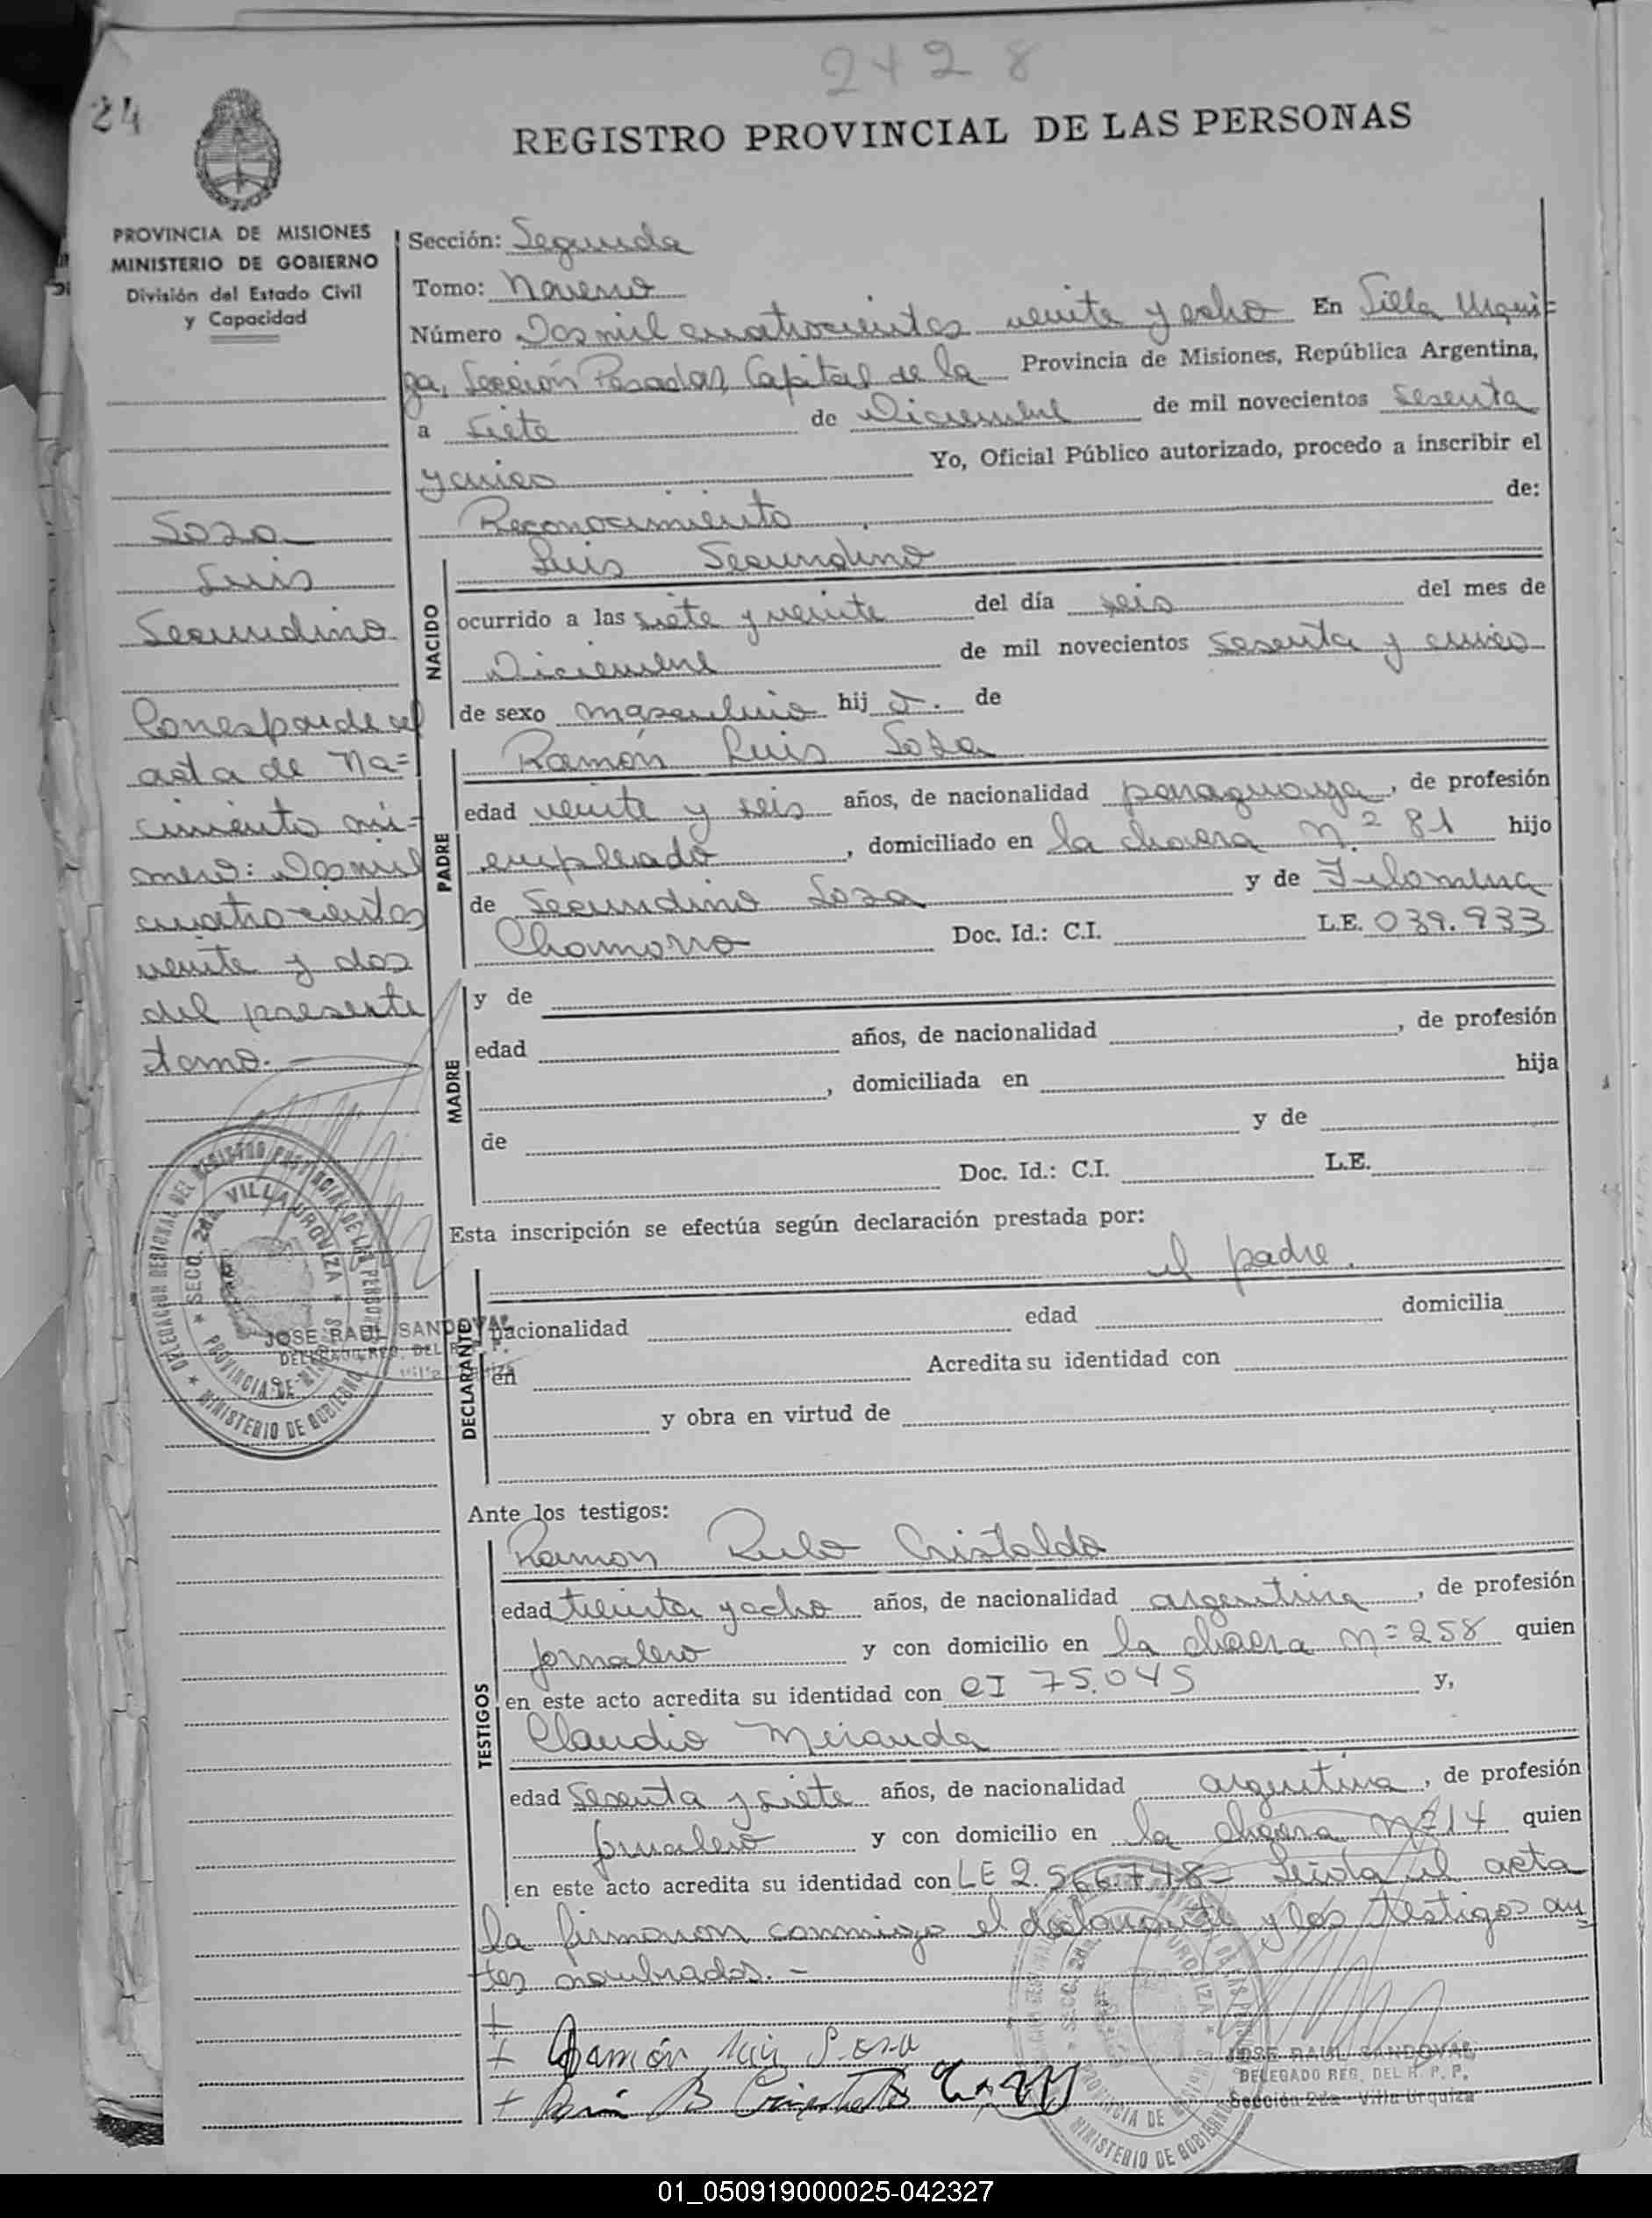 2428
24
REGISTRO PROVINCIAL DE LAS PERSONAS
PROVINCIA DE MISIONES
MINISTERIO DE GOBIERNO
División del Estado Civil
y Capacidad
Soza
Luis
Secundino
Corresponde al
acta de Na=
cimiento nú=
mero: Dos mil
cuatrocientos
veinte y dos
del presente
tomo.-
Sección: Segunda
Tomo: Noveno
Número Dos mil cuatrocientos veinte y ocho En Villa Urqui=
za, Sección Posadas, Capital de la Provincia de Misiones, República Argentina,
a siete de Diciembre de mil novecientos sesenta
y cinco Yo, Oficial Público autorizado, procedo a inscribir el
Reconocimiento de:
NACIDO
Luis Secundino
ocurrido a las siete y veinte del día seis del mes de
Diciembre de mil novecientos sesenta y cinco
de sexo masculino hijo. de
PADRE
Ramón Luis Soza
edad veinte y seis años, de nacionalidad paraguaya, de profesión
empleado, domiciliado en la chacra n.º 81 hijo
de Secundino Soza y de Filomena
Chamorro Doc. Id.: C.I. L.E. 039.933
MADRE
y de
edad años, de nacionalidad , de profesión
, domiciliada en hija
de y de
Doc. Id.: C.I. L.E.
Esta inscripción se efectúa según declaración prestada por:
el padre.
DECLARANTE
nacionalidad edad domicilia
en Acredita su identidad con
y obra en virtud de
DELEGACION REGIONAL DEL REGISTRO PROVINCIAL DE LAS PERSONAS
SECC. 2da. VILLA URQUIZA
PROVINCIA DE MISIONES
MINISTERIO DE GOBIERNO
JOSE RAUL SANDOVAL
DELEGADO REG. DEL R. P. P.
Ante los testigos:
TESTIGOS
Ramon Rulo Cristaldo
edad treinta y ocho años, de nacionalidad argentina, de profesión
jornalero y con domicilio en la chacra n=258 quien
en este acto acredita su identidad con CI 75.045 y,
Claudio Miranda
edad sesenta y siete años, de nacionalidad argentina, de profesión
jornalero y con domicilio en la chacra nº14 quien
en este acto acredita su identidad con LE 2.566.748= Leída el acta
la firmaron conmigo el declarante y los testigos an=
tes nombrados.-
Ramón Luis Soza
JOSE RAUL SANDOVAL
DELEGADO REG. DEL R. P. P.
Sección 2da - Villa Urquiza
01_050919000025-042327